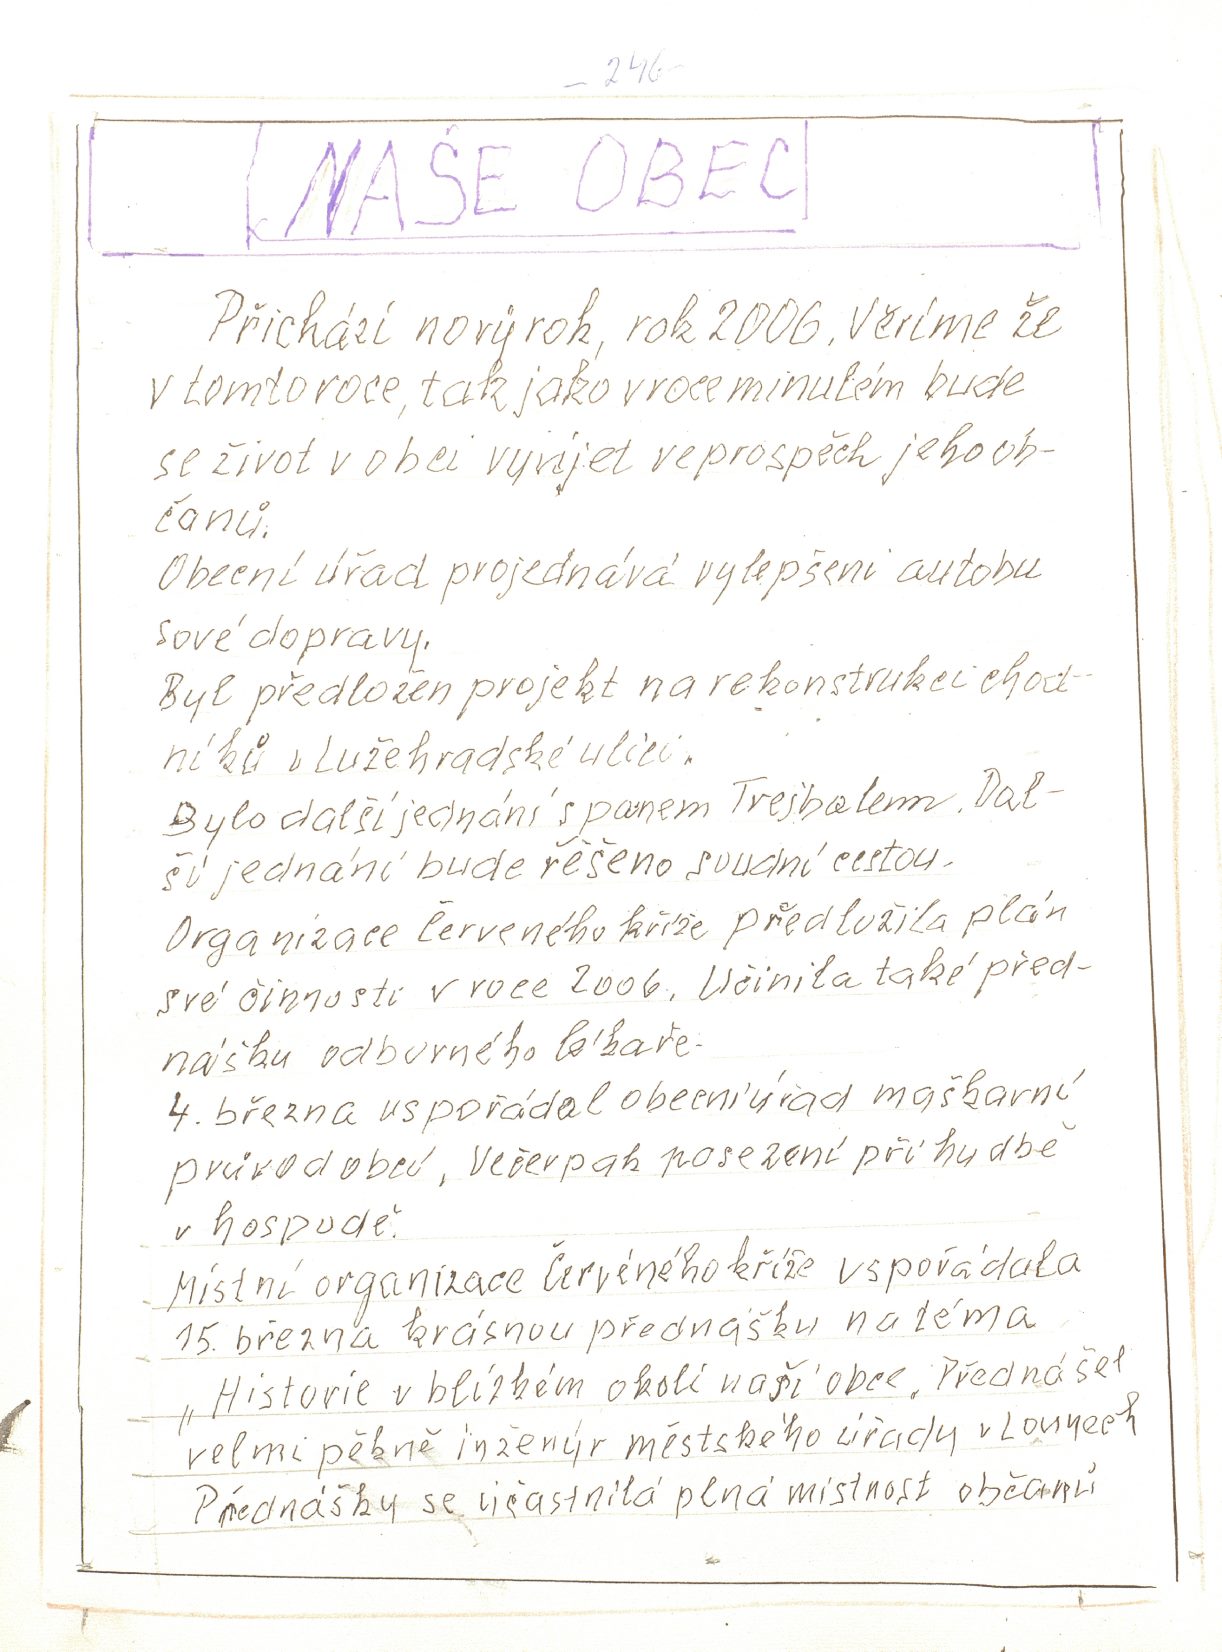 - 246-
NAŠE OBEC
Přichází nový rok, rok 2006. Věříme že
v tomto roce, tak jako v roce minulém bude
se život v obci vyvíjet ve prospěch jeho ob-
čanů.
Obecní úřad projednává vylepšení autobu
sové dopravy.
Byl předložen projekt na rekonstrukci chod-
níků v Lužehradské ulici.
Bylo další jednání s panem Trejbalem. Dal-
ší jednání bude řešeno soudní cestou.
Organizace červeného kříže předložila plán
své činnosti v roce 2006. Učinila také před-
nášku odborného lékaře.
4. března uspořádal obecní úřad maškarní
průvod obcí, Večer pak posezení při hudbě
v hospodě.
Místní organizace Červeného kříže uspořádala
15. března krásnou přednášku na téma
„Historie v blízkém okolí naší obce. Přednášel
velmi pěkně inženýr městského úřady v Lounech
Přednášky se účastnila plná místnost občanů